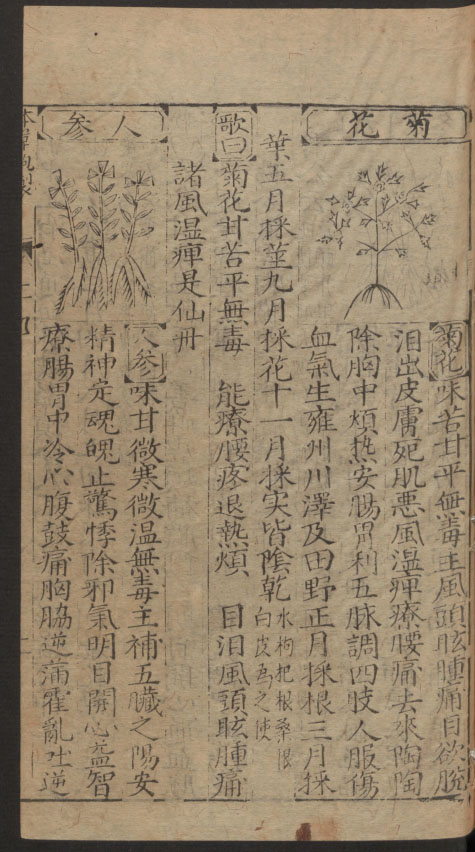 菊花
菊花味苦甘平無毒主風頭眩腫痛目欲脫
泪出皮膚死肌惡風温痺療腰痛去來陶陶
除胸中煩熱安腸胃利五脉調四肢人服傷
血氣生雍州川澤及田野正月採根三月採
葉五月採莖九月採花十一月採实皆陰乾
水枸杞根桑根
白皮為之使
歌曰菊花甘苦平無毒 能療腰疼退熱煩 目泪風頭眩腫痛
諸風温痺是仙丹
人参
人参味甘微寒微温無毒主補五臟之陽安
精神定魂魄止驚悸除邪氣明目開心益智
療腸胃中冷心腹鼓痛胸脇逆滿霍亂吐逆